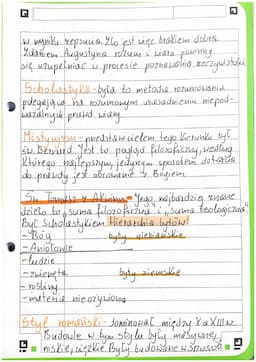 w wyniku zepsucia. Zło jest więc brakiem dobra.
Zdaniem Augustyna rozum i wiara powinny
się uzupełniać w procesie poznawania rzeczywistości.
Scholastyka - była to metoda rozumowania
polegająca na rozumowym uzasadnieniu niepod-
ważalnych prawd wiary.
Mistycyzm - przedstawicielem tego kierunku był
św. Bernard. Jest to pogląd filozoficzny, według
którego najlepszym, jedynym sposobem dotarcia
do prawdy jest obcowanie z Bogiem.
Św. Tomasz z Akwinu - Jego najbardziej znane
dzieło to "suma filozoficzna" i "suma teologiczna".
Był scholastykiem. Hierarchia bytów!
- Bóg byty niebiańskie
- Aniołowie
- ludzie
- zwierzęta byty ziemskie
- rośliny
- materia nieożywiona
Styl romański - dominował między X a XIII w.
Budowle w tym stylu były masywne,
niskie, ciężkie. Były budowane w sposób